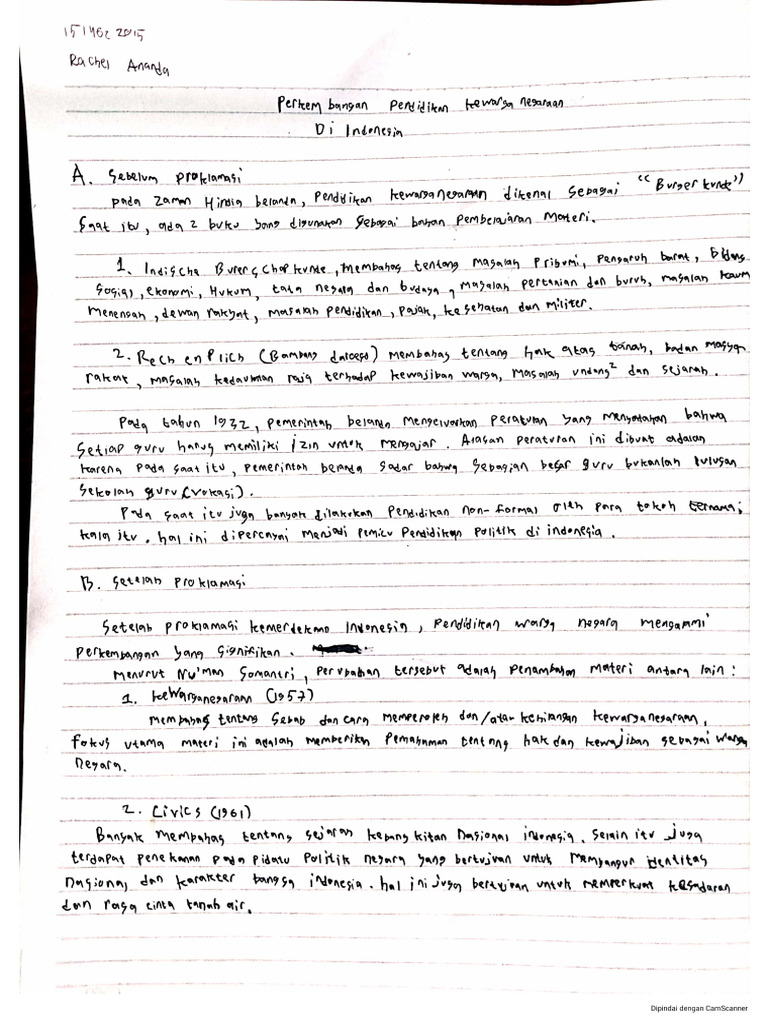 Rachel Ananda
Perkembangan Pendidikan kewarganegaraan
Di Indonesia
A. Sebelum proklamasi
pada zaman Hindia belanda, Pendidikan kewarganegaraan dikenal sebagai "Burgerkunde"
Saat itu, ada 2 buku yang digunakan sebagai bahan Pembelajaran Materi.
1. Indische Burgerschapkunde, membahas tentang masalah Pribumi, Pengaruh barat, Bidang
sosial, ekonomi, Hukum, tata negara dan budaya, masalah pertanian dan buruh, masalah kaum
menengah, dewan rakyat, masalah pendidikan, pajak, kesehatan dan militer.
2. Rech en Plich (Bambang daroeso) membahas tentang hak atas tanah, badan masyan
rakat, masalah kedaulatan raja terhadap kewajiban warga, masalah undang² dan sejarah.
Pada tahun 1932, pemerintah belanda mengeluarkan peraturan yang menyatakan bahwa
setiap guru harus memiliki izin untuk mengajar. Alasan peraturan ini dibuat adalah
karena pada saat itu, pemerintah belanda sadar bahwa sebagian besar guru bukanlah lulusan
sekolah guru (vokasi).
Pada saat itu juga banyak dilakukan Pendidikan non-formal oleh para tokoh ternama
kala itu. hal ini dipercayai menjadi pemicu Pendidikan Politik di indonesia.
B. Setelah proklamasi
Setelah proklamasi kemerdekaan Indonesia, pendidikan warga negara mengalami
perkembangan yang signifikan.
Menurut Nu'man Somantri, perubahan tersebut adalah penambahan materi antara lain:
1. kewarganegaraan (1957)
membahas tentang sebab dan cara memperoleh dan/atau kehilangan kewarganegaraan,
fokus utama materi ini adalah memberikan pemahaman tentang hak dan kewajiban sebagai warga
negara.
2. Civics (1961)
Banyak membahas tentang sejarah kebangkitan nasional indonesia. selain itu juga
terdapat penekanan pada pidato politik negara yang bertujuan untuk membangun identitas
nasional dan karakter bangsa indonesia. hal ini juga bertujuan untuk memperkuat kesadaran
dan rasa cinta tanah air.
Dipindai dengan CamScanner